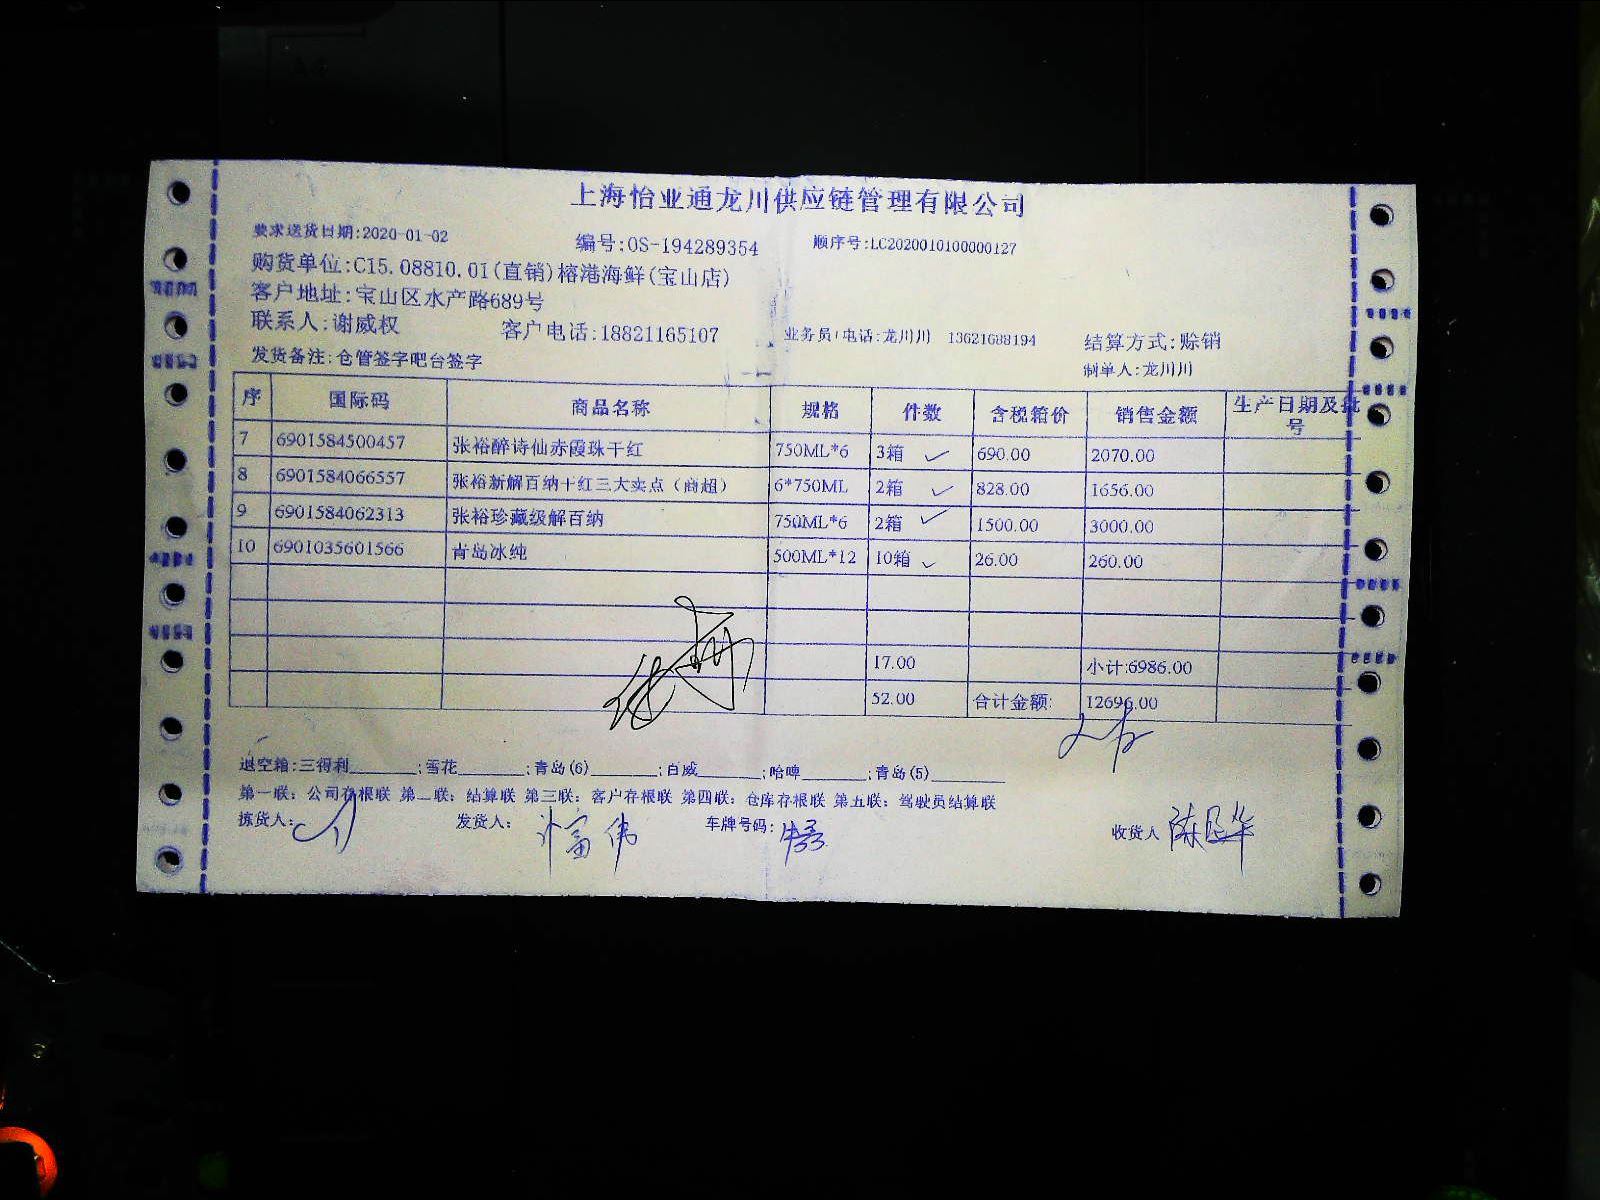 上海怡业通龙川供应链管理有限公司
要求送货日期:2020-01-02 编号:OS-194289354 顺序号:LC2020010100000127
购货单位:C15.08810.01(直销)榕港海鲜(宝山店)
客户地址:宝山区水产路689号
联系人:谢威权 客户电话:18821165107 业务员/电话:龙川川 13621688194 结算方式:赊销
发货备注:仓管签字吧台签字 制单人:龙川川
序 国际码 商品名称 规格 件数 含税箱价 销售金额 生产日期及批号
7 6901584500457 张裕醉诗仙赤霞珠干红 750ML*6 3箱 690.00 2070.00
8 6901584066557 张裕新解百纳干红三大卖点（商超） 6*750ML 2箱 828.00 1656.00
9 6901584062313 张裕珍藏级解百纳 750ML*6 2箱 1500.00 3000.00
10 6901035601566 青岛冰纯 500ML*12 10箱 26.00 260.00
17.00 小计:6986.00
52.00 合计金额: 12696.00
退空箱:三得利______;雪花______;青岛(6)______;百威______;哈啤______;青岛(5)______
第一联：公司存根联 第二联：结算联 第三联：客户存根联 第四联：仓库存根联 第五联：驾驶员结算联
拣货人: 发货人: 许富伟 车牌号码: 收货人